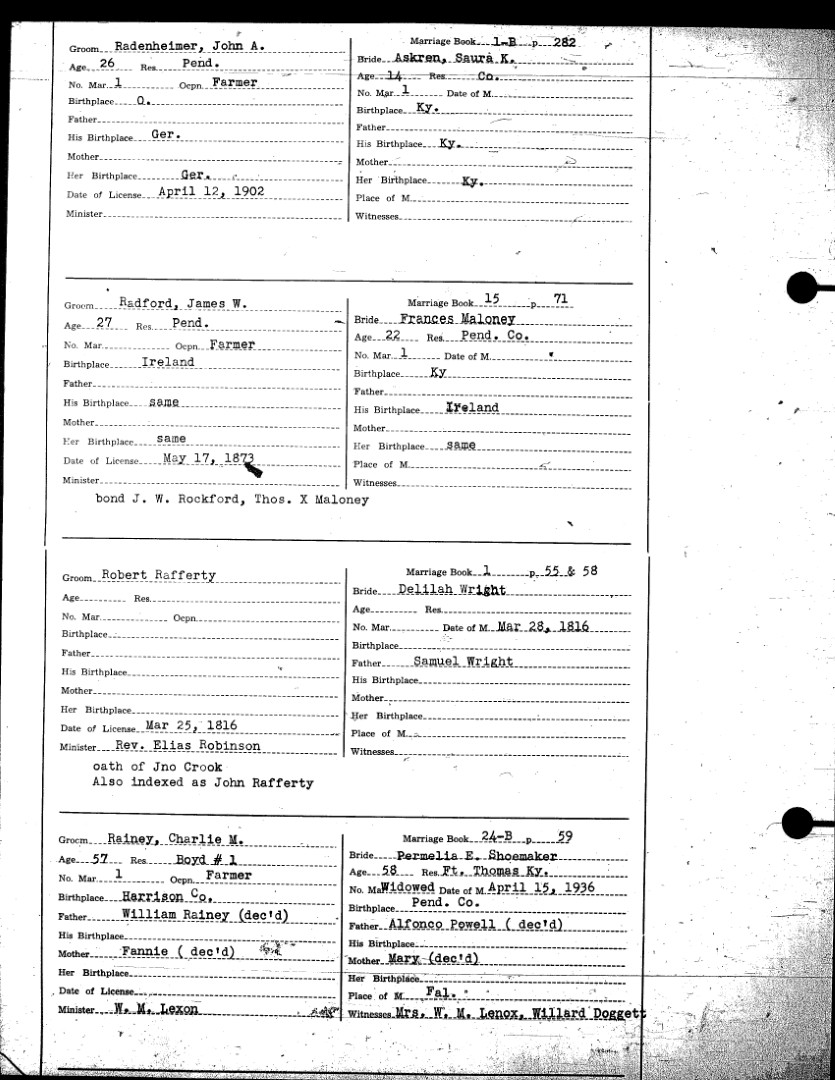 Groom Radenheimer, John A.
Age 26 Res. Pend.
No. Mar 1 Ocpn Farmer
Birthplace O.
Father
His Birthplace Ger.
Mother
Her Birthplace Ger.
Date of License April 12, 1902
Minister
Marriage Book 1-B p. 282
Bride Askren, Saura K.
Age 14 Res. Co.
No. Mar 1 Date of M.
Birthplace Ky.
Father
His Birthplace Ky.
Mother
Her Birthplace Ky.
Place of M.
Witnesses
Groom Radford, James W.
Age 27 Res. Pend.
No. Mar. Ocpn. Farmer
Birthplace Ireland
Father
His Birthplace same
Mother
Her Birthplace same
Date of License May 17, 1873
Minister
bond J. W. Rockford, Thos. X Maloney
Marriage Book 15 p. 71
Bride Frances Maloney
Age 22 Res. Pend. Co.
No. Mar. 1 Date of M.
Birthplace Ky
Father
His Birthplace Ireland
Mother
Her Birthplace same
Place of M.
Witnesses
Groom Robert Rafferty
Age Res.
No. Mar. Ocpn.
Birthplace
Father
His Birthplace
Mother
Her Birthplace
Date of License Mar 25, 1816
Minister Rev. Elias Robinson
oath of Jno Crook
Also indexed as John Rafferty
Marriage Book 1 p. 55 & 58
Bride Delilah Wright
Age Res.
No. Mar. Date of M. Mar 28, 1816
Birthplace
Father Samuel Wright
His Birthplace
Mother
Her Birthplace
Place of M.
Witnesses
Groom Rainey, Charlie M.
Age 57 Res. Boyd # 1
No. Mar 1 Ocpn. Farmer
Birthplace Harrison Co.
Father William Rainey (dec'd)
His Birthplace
Mother Fannie ( dec'd)
Her Birthplace
Date of License
Minister W. M. Lexon
Marriage Book 24-B p. 59
Bride Permelia E. Shoemaker
Age 58 Res. Ft. Thomas Ky.
No. Ma Widowed Date of M. April 15, 1936
Birthplace Pend. Co.
Father Alfonco Powell ( dec'd)
His Birthplace
Mother Mary (dec'd)
Her Birthplace
Place of M Fal.
Witnesses Mrs. W. M. Lenox, Willard Doggett